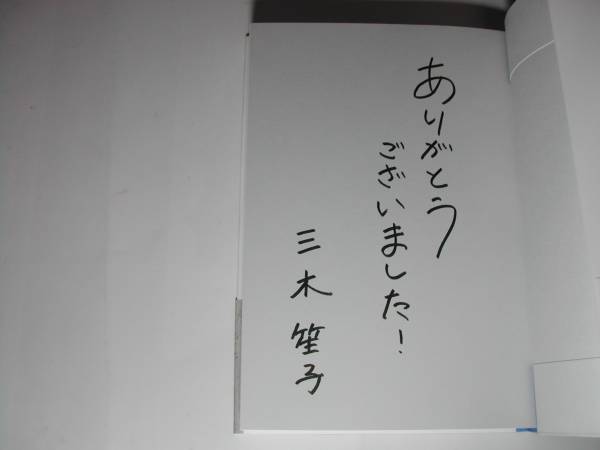 ありがとう
ございました!
三木笙子